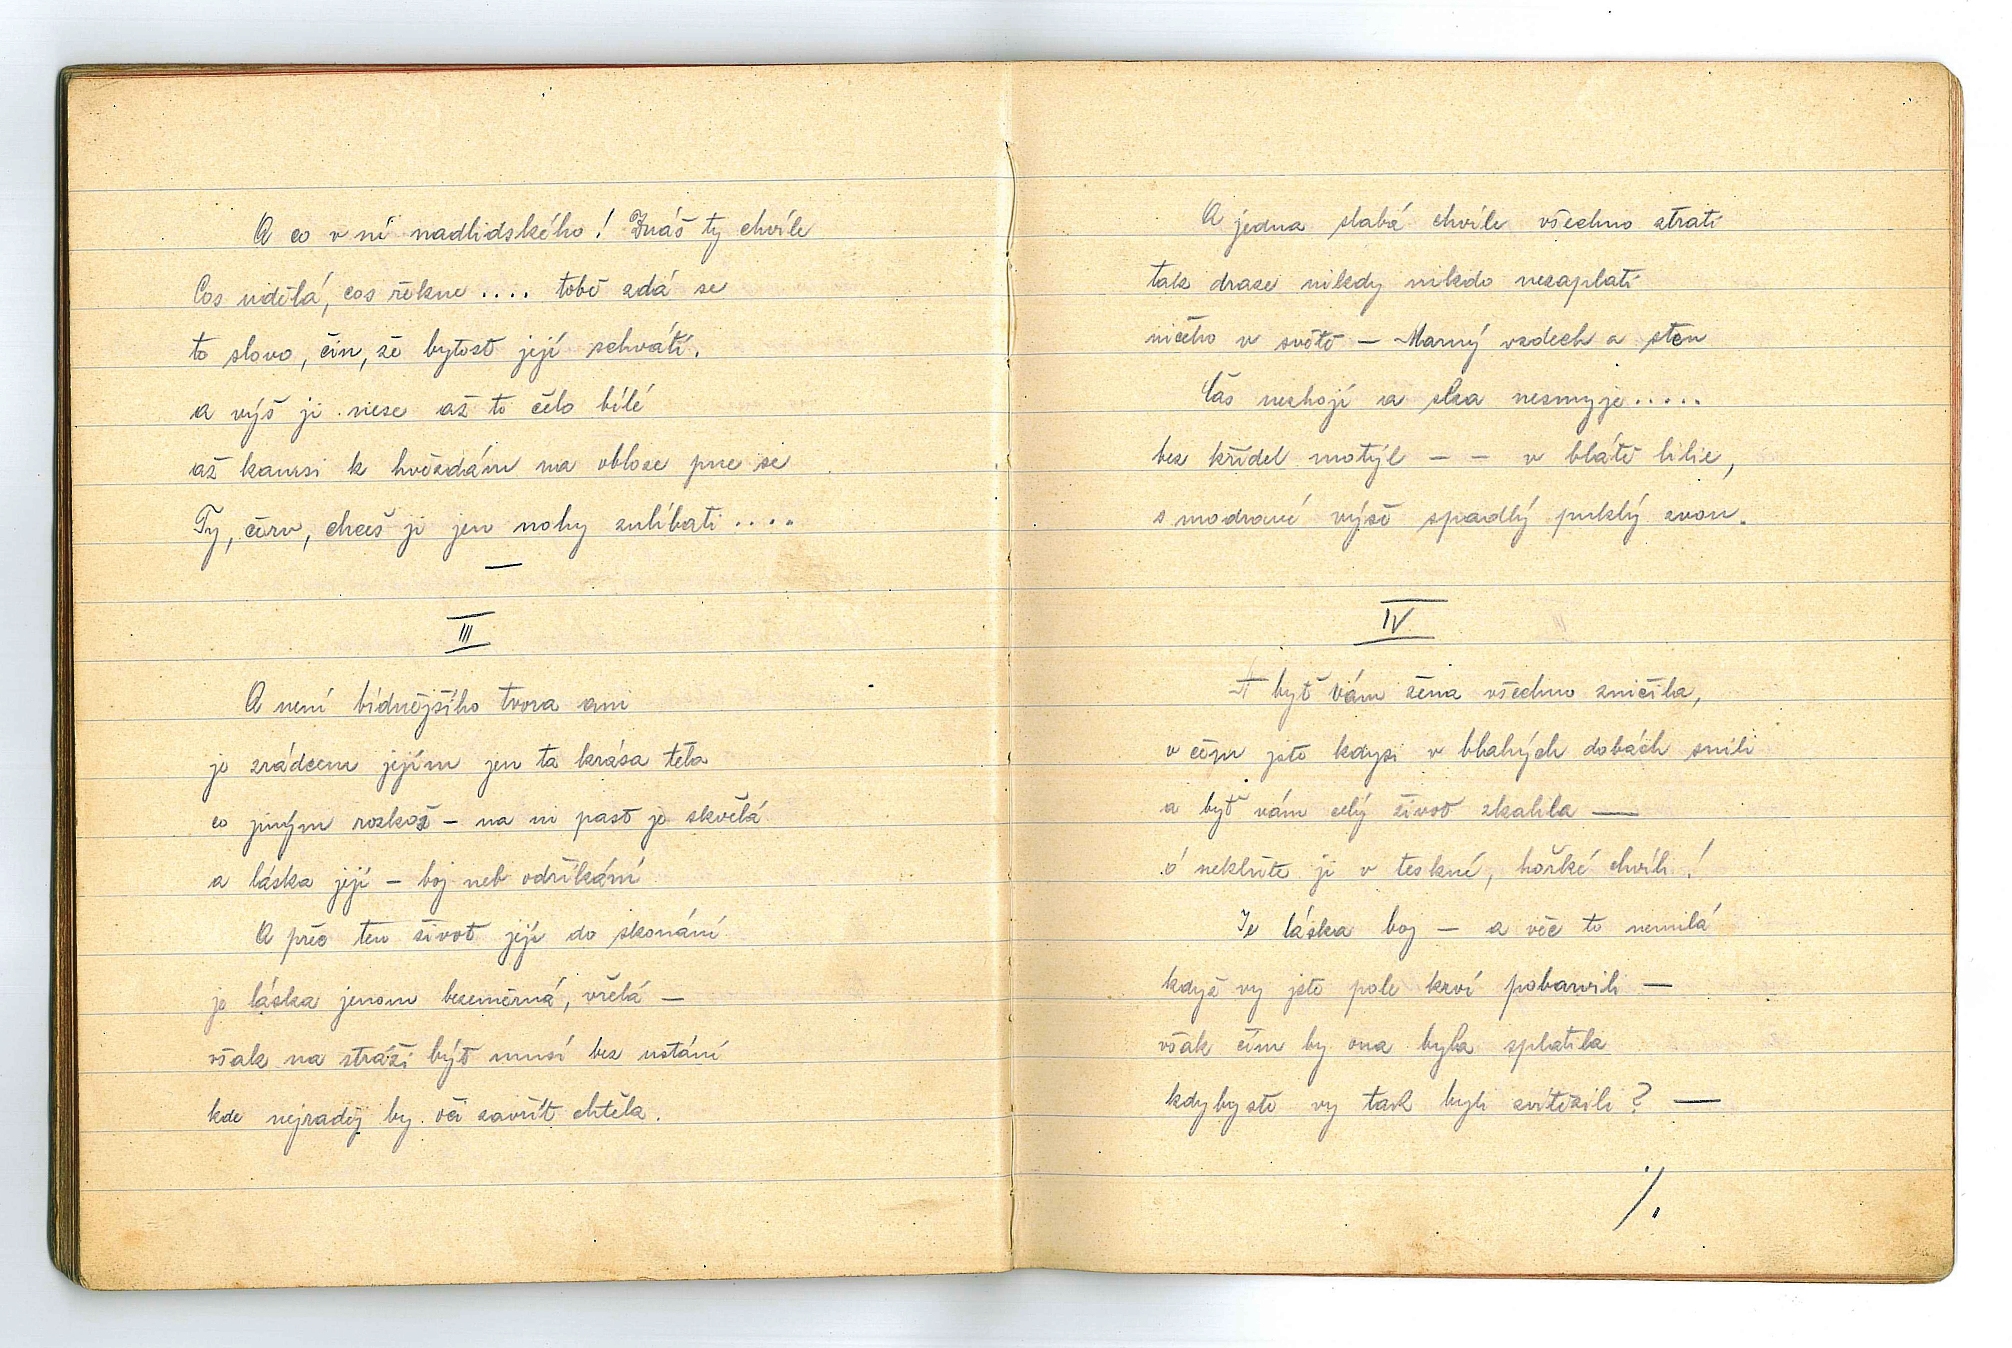 A co v ní nadlidského! Znáš ty chvíle
Cos udělá, cos řekne .... tobě zdá se
to slovo, čin, že bytost její schvátí.
a výš ji nese až to čelo bílé
až kamsi k hvězdám na obloze pne se
Ty, červ, chceš jí jen nohy zulíbati ....
—
III
A není bídnějšího tvora ani
je zrádcem jejím jen ta krása těla
co jiným rozkoš – na ni past je skvělá
a láska její – boj neb odříkání
A přec ten život její do skonání
je láska jenom bezměrná, vřelá —
však na stráži býť musí bez ustání
kde nejraděj by oči zavřít chtěla.
A jedna slabá chvíle všechno ztratí
tak draze nikdy nikdo nezaplatí
ničeho v světě – Marný vzdech a sten
Čas nezhojí a slza nesmyje.....
bez křídel motýl – – v blátě lilie,
s modravé výše spadlý puklý zvon.
IV
A byť vám žena všechno zničila,
v čem jste kdysi v blahých dobách snili
a byť vám celý život zkalila —
ó neklňte jí v teskné, hořké chvíli!
Je láska boj – a věc to nemilá
když vy jste pole krví pobarvili —
však čím by ona byla splatila
kdybyste vy tak byli zvítězili? —
/.